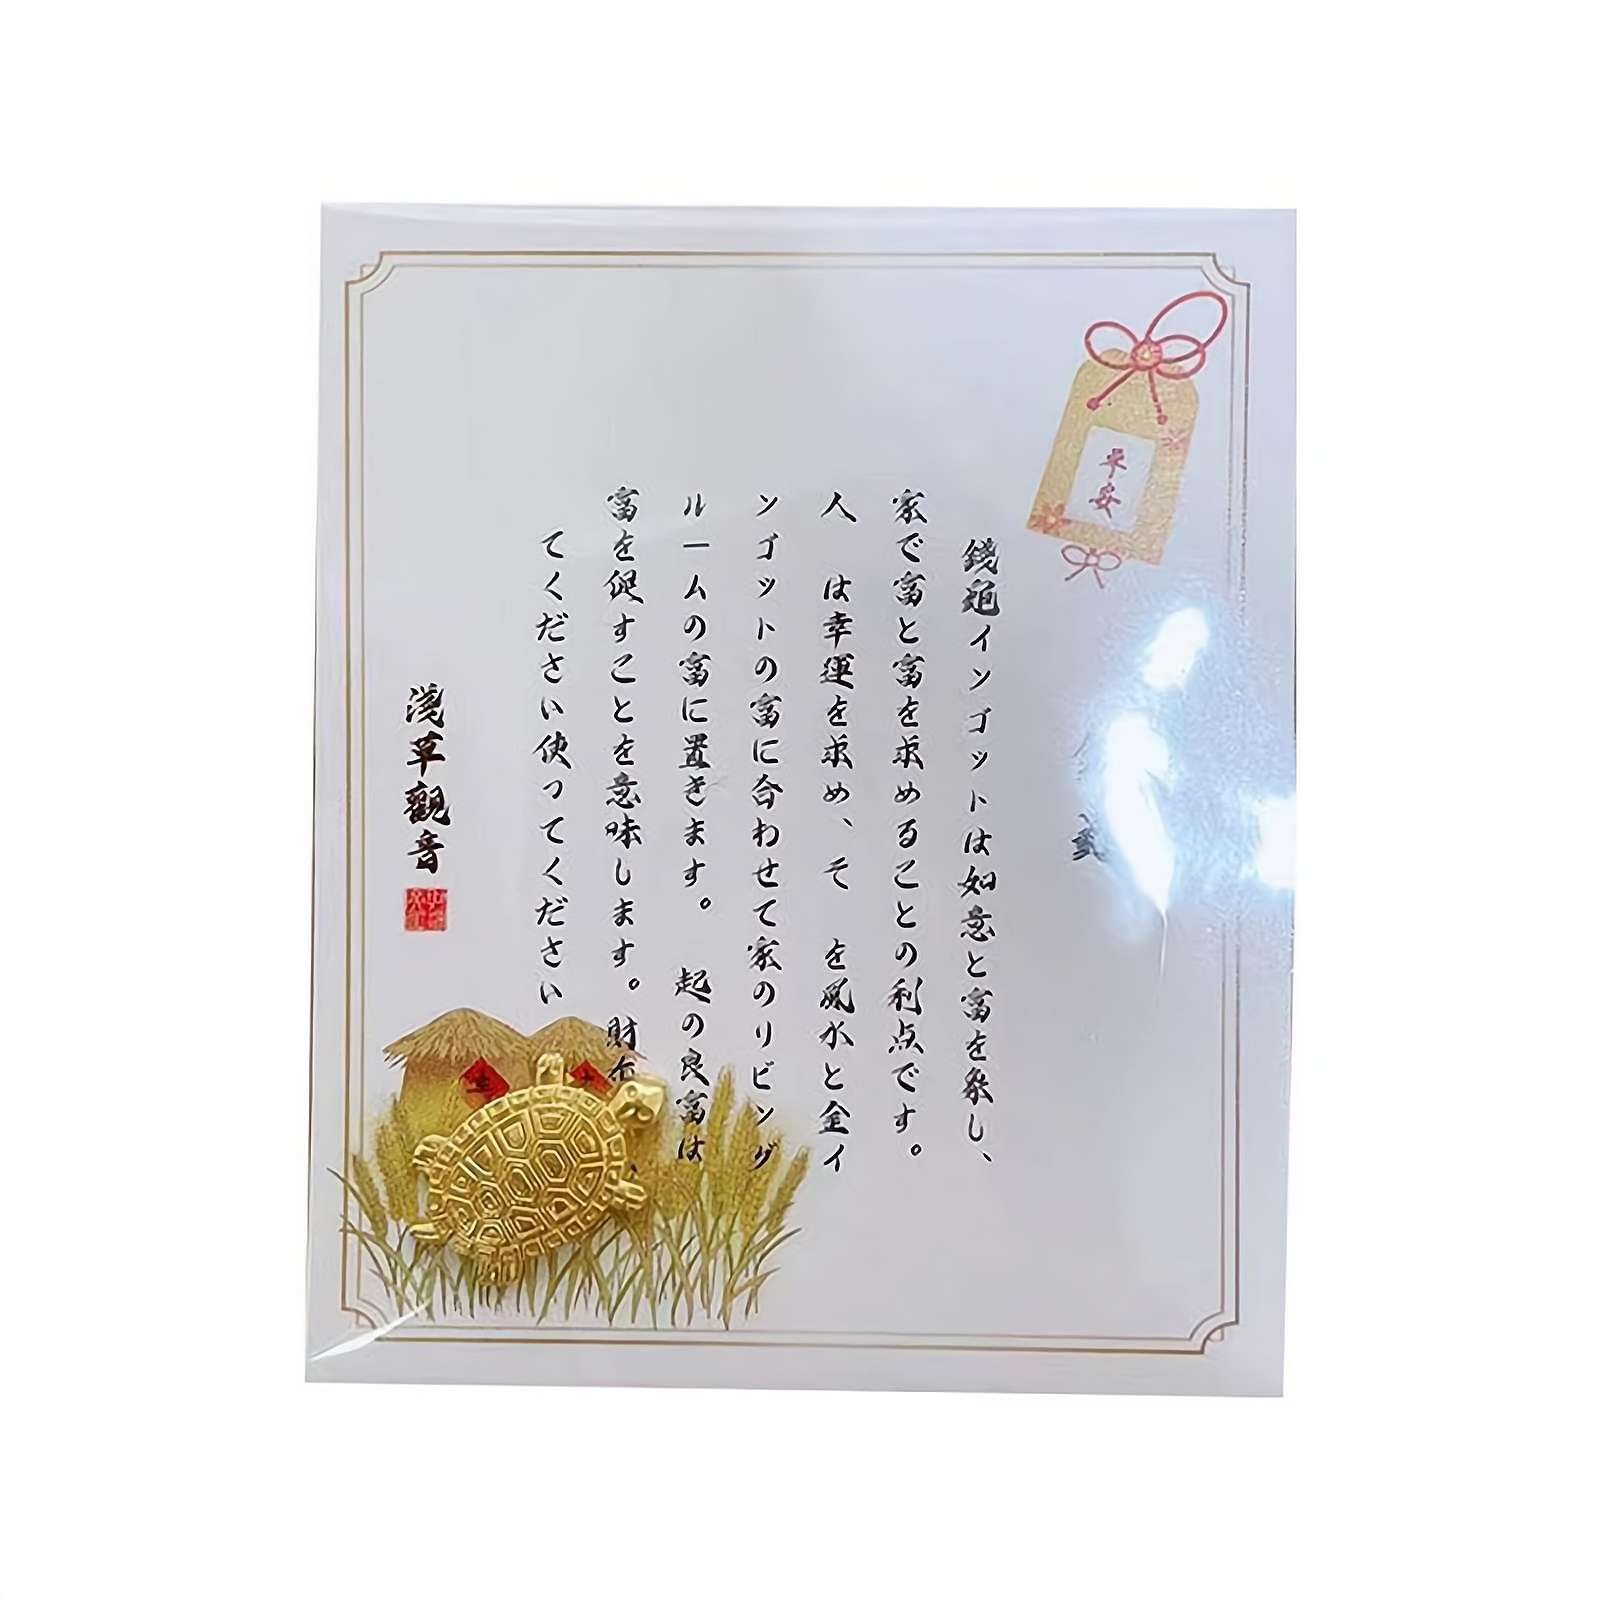 平安
銭亀インゴットは如意と富を象し、
家で富と富を求めることの利点です。
人 は幸運を求め、そ を風水と金イ
ンゴットの富に合わせて家のリビング
ルームの富に置きます。 起の良富は
富を促すことを意味します。財
てください使ってください
浅草觀音